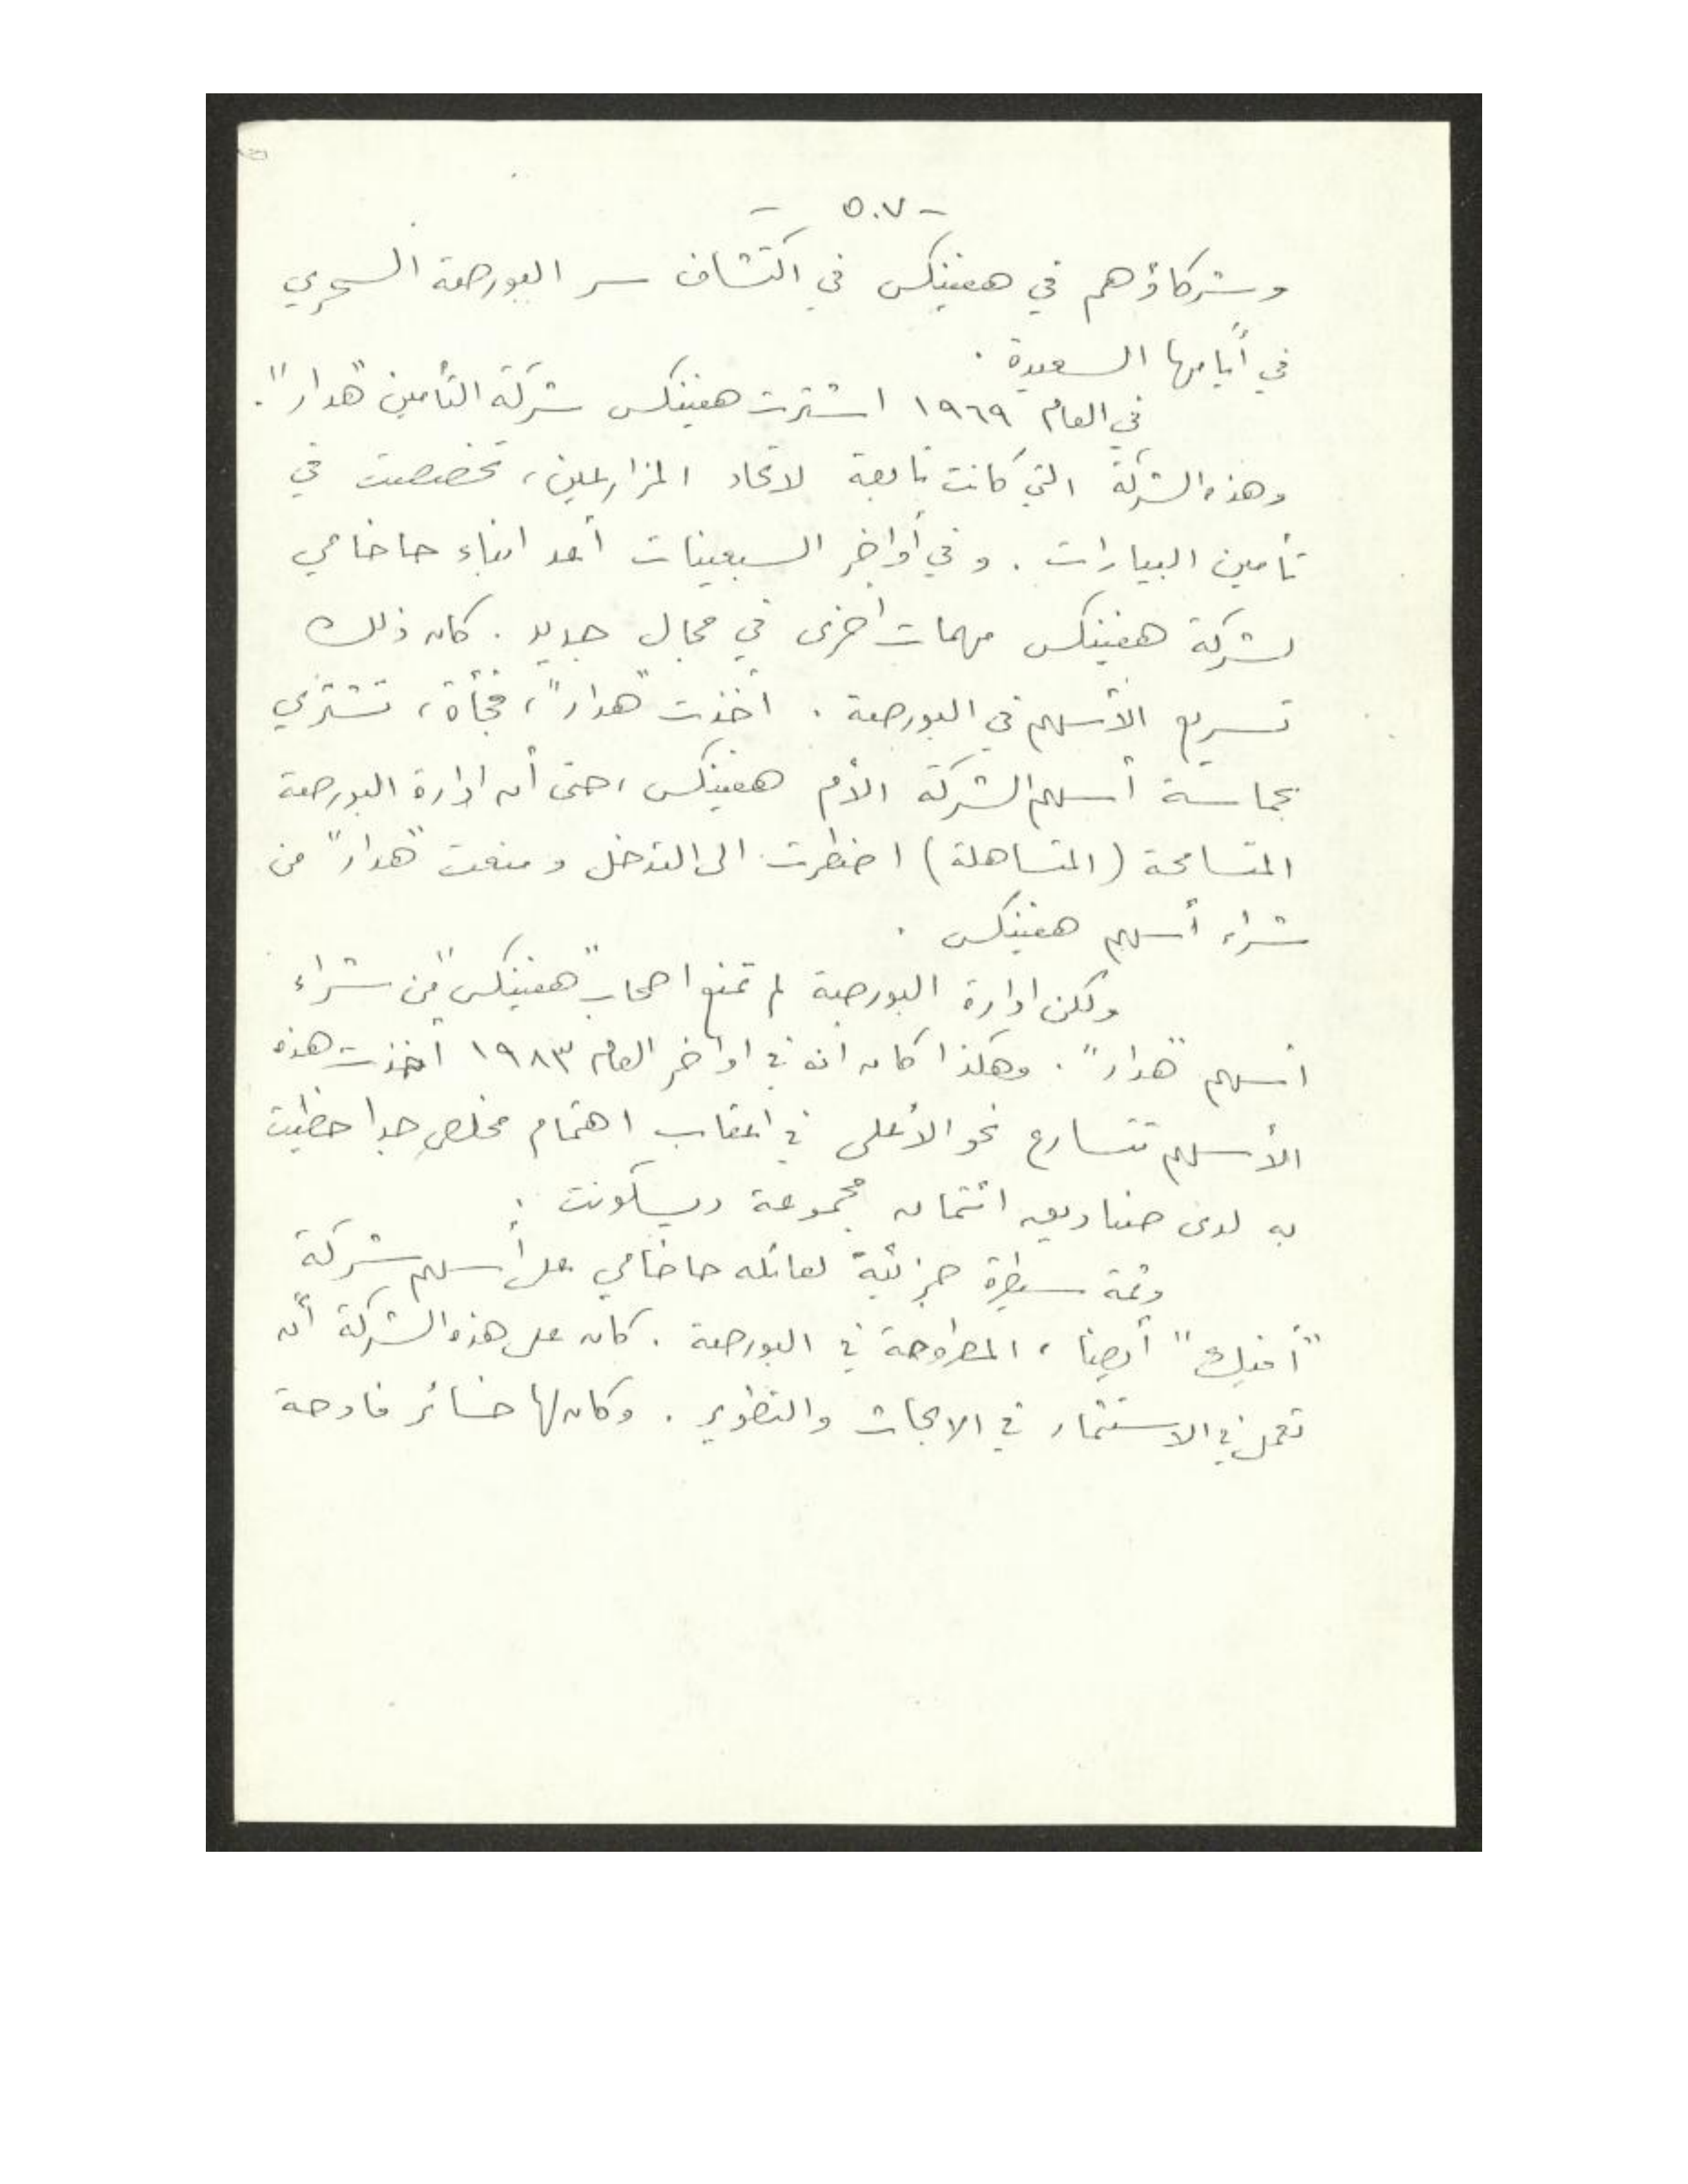 - ٥٠٧ -
وشركاؤهم في هفينكس في اكتشاف سر البورصة السحري
في أيامها السعيدة .
في العام ١٩٦٩ اشترت هفينكس شركة التأمين "هدار".
وهذه الشركة التي كانت تابعة لاتحاد المزارعين، تخصصت في
تأمين البيارات . وفي أواخر السبعينات أعد ابناء حاخامي
لشركة هفينكس مهمات أخرى في مجال جديد . كان ذلك
تسريع الأسهم في البورصة . أخذت "هدار"، فجأة، تشتري
بحماسة أسهم الشركة الأم هفينكس، حتى أن ادارة البورصة
المتسامحة (المتساهلة) اضطرت الى التدخل ومنعت "هدار" من
شراء أسهم هفينكس .
ولكن ادارة البورصة لم تمنع اصحاب "هفينكس" من شراء
أسهم "هدار" . وهكذا كان انه في اواخر العام ١٩٨٣ أخذت هذه
الأسهم تتسارع نحو الأعلى في اعقاب اهتمام مخلص جدا حظيت
به لدى صناديق ائتمان مجموعة ديسكونت .
وثمة سيطرة جزئية لعائلة حاخامي على أسهم شركة
أيضا ، المطروحة في البورصة . كان على هذه الشركة أن
تعمل في الاستثمار في الابحاث والتطوير . وكان لها خسائر فادحة